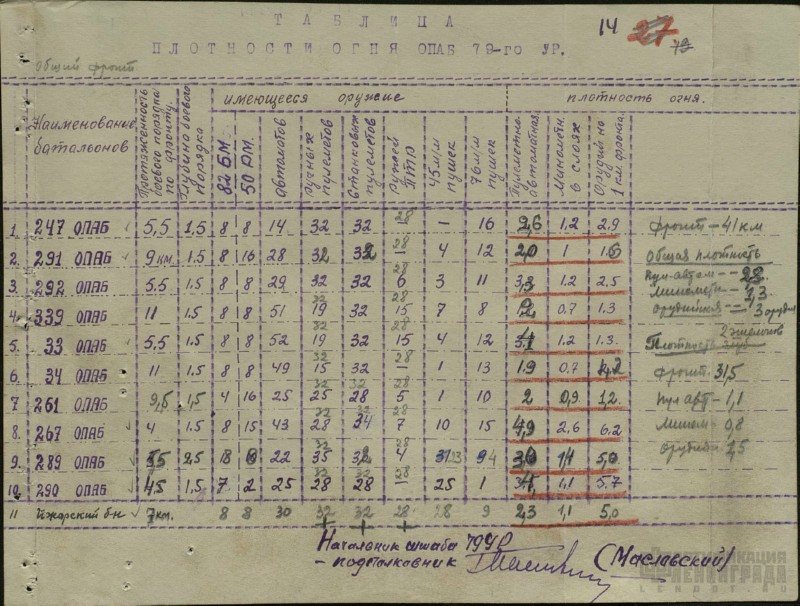 ТАБЛИЦА
14 27 79
ПЛОТНОСТИ ОГНЯ ОПАБ 79-го УР.
Общий фронт
Наименование баталионов
Протяженность боевого порядка по фронту
Глубина боевого порядка
имеющееся оружие
плотность огня.
82 Б.М. 50 Р.М. автоматов Ручных пулеметов Станковых пулеметов Ружей ПТР 45 м/м пушек 76 м/м пушек Пулеметно-автоматная. Минометн. в слоях Орудий на 1 км фронта.
1. 247 ОПАБ 5,5 1.5 8 8 14 32 32 28 – 16 2,6 1.2 2,9
фронт – 41 км
2. 291 ОПАБ 9 км. 1.5 8 16 28 32 32 28 – 4 12 2,0 1
Общая плотность
3. 292 ОПАБ 5.5 1.5 8 8 29 32 32 28 6 3 11 3,3 1.2 2,5
пул-автом --
минометн -- 1,3
4. 339 ОПАБ 11 1.5 8 8 51 32 19 32 28 15 7 8 2 0.7 1.3
орудийная -- 3 орудия
2 эшелонов
5. 33 ОПАБ 5.5 1.5 8 8 52 32 19 32 28 15 4 12 1.2 1.3
Плотность
6. 34 ОПАБ 11 1.5 8 8 49 32 15 32 28 – 1 13 1.9 0.7
фронт. 31,5
7 261 ОПАБ 9,5 1,5 4 16 25 25 28 28 5 1 10 2 0,9 1,2
пул авт – 1,1
8. 267 ОПАБ 4 1.5 8 15 43 28 34 7 10 15 4,9 2.6 6.2
мином – 0,8
9. 289 ОПАБ 2.5 22 35 4 23 1,4
орудийн
10. 290 ОПАБ 4,5 1,5 7 2 25 28 28 28 – 25 1 1,1 5.7
11 Ижорский бн 7 км. 8 8 30 32 32 28 18 9 2,3 1,1 5,0
Начальник штаба 79 УР
– подполковник (Маславский)
ЛЕНИНГРАДА